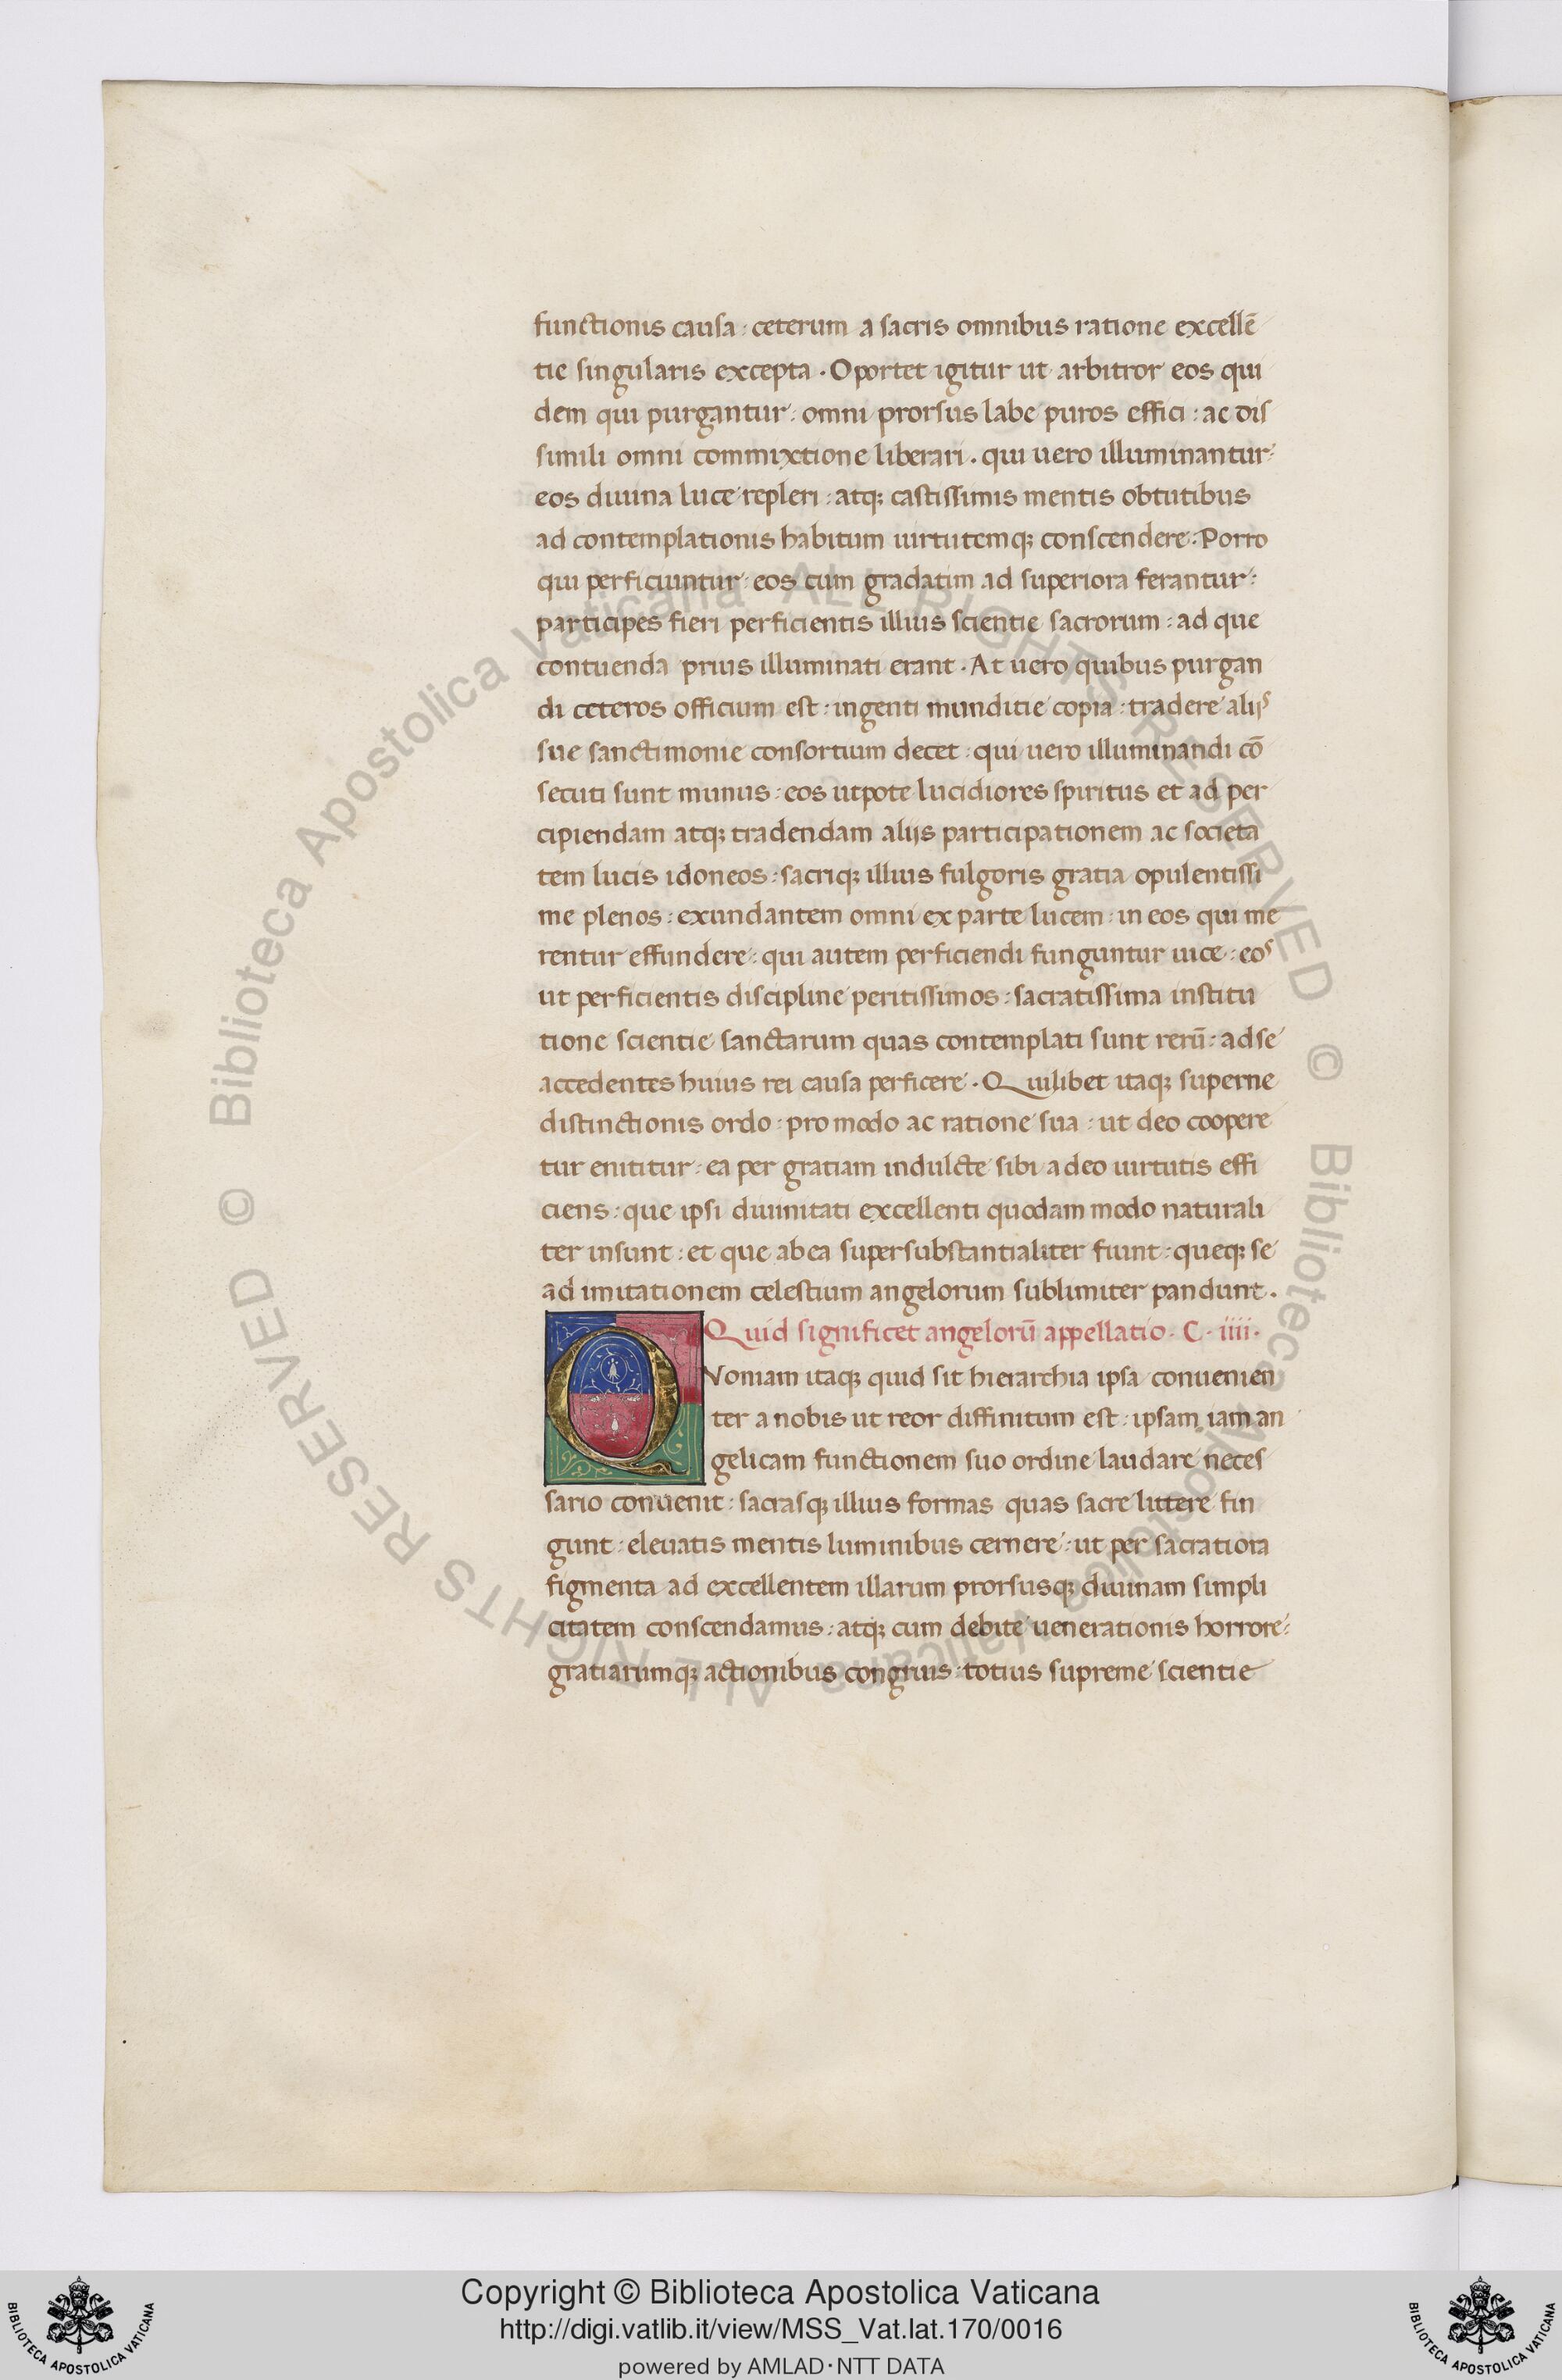 functionis causa : ceterum a sacris omnibus ratione excellē
tie singularis excepta . Oportet igitur ut arbitror eos qui
dem qui purgantur : omni prorsus labe puros effici : ac dis
simili omni commixtione liberari . qui uero illuminantur :
eos diuina luce repleri : atq; castissimis mentis obtutibus
ad contemplationis habitum uirtutemq; conscendere . Porro
qui perficiuntur eos cum gradatim ad superiora ferantur :
participes fieri perficientis illius scientie sacrorum : ad que
contuenda prius illuminati erant . At uero quibus purgan
di ceteros officium est : ingenti munditie copia : tradere alijs
sue sanctimonie consortium decet : qui uero illuminandi cō
secuti sunt munus : eos utpote lucidiores spiritus et ad per
cipiendam atq; tradendam alijs participationem ac societa
tem lucis idoneos : sacriq; illius fulgoris gratia opulentissi
me plenos : exundantem omni ex parte lucem : in eos qui me
rentur effundere : qui autem perficiendi funguntur uice : eos
ut perficientis discipline peritissimos : sacratissima institu
tione scientie sanctarum quas contemplati sunt rerū : ad se
accedentes huius rei causa perficere . Quilibet itaq; superne
distinctionis ordo : pro modo ac ratione sua : ut deo coopere
tur enititur : ea per gratiam indulcte sibi a deo uirtutis effi
ciens : que ipsi diuinitati excellenti quodam modo naturali
ter insunt : et que ab ea supersubstantialiter fiunt : queq; se
ad imitationem celestium angelorum sublimiter pandunt .
Quid significet angelorū appellatio . C . iiii .
QVoniam itaq; quid sit hierarchia ipsa conuenien
ter a nobis ut reor diffinitum est : ipsam iam an
gelicam functionem suo ordine laudare neces
sario conuenit : sacrasq; illius formas quas sacre littere fin
gunt : eleuatis mentis luminibus cernere : ut per sacratiora
figmenta ad excellentem illarum prorsusq; diuinam simpli
citatem conscendamus : atq; cum debite uenerationis horrore :
gratiarumq; actionibus congruis : totius supreme scientie
© Biblioteca Apostolica Vaticana ALL RIGHTS RESERVED © Biblioteca Apostolica Vaticana ALL RIGHTS RESERVED
Copyright © Biblioteca Apostolica Vaticana
http://digi.vatlib.it/view/MSS_Vat.lat.170/0016
powered by AMLAD · NTT DATA
BIBLIOTECA APOSTOLICA VATICANA
BIBLIOTECA APOSTOLICA VATICANA